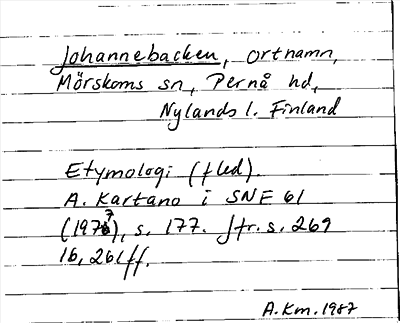 Johannebacken, ortnamn,
Mörskoms sn, Pernå hd,
Nylands l. Finland
Etymologi (fled).
A. Kartano i SNF 61
(1977), s. 177. Jfr. s. 269
16, 261ff.
A.Km. 1987